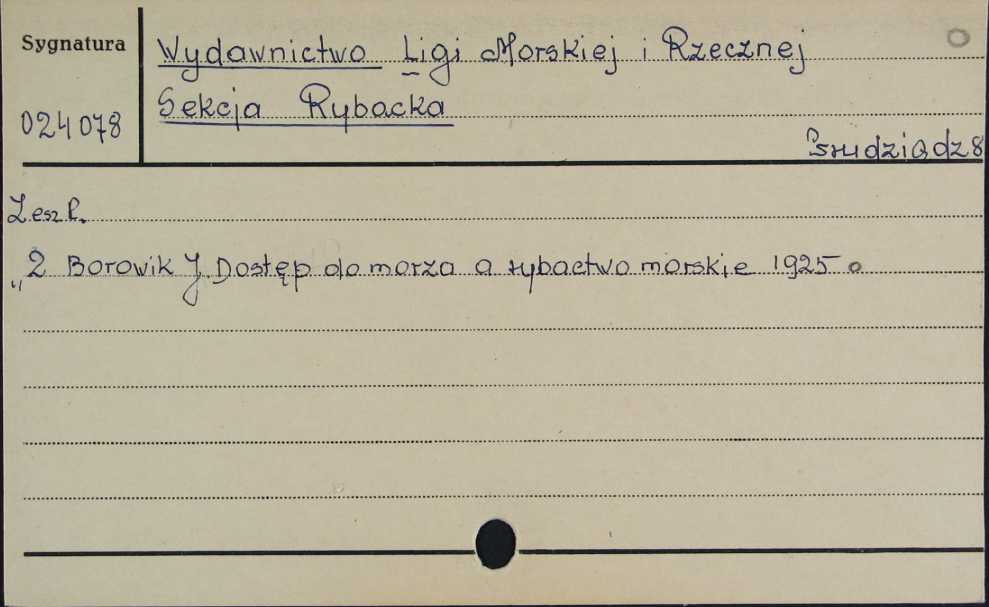 Sygnatura
Wydawnictwo Ligi Morskiej i Rzecznej
Sekcja Rybacka
024078
Grudziądz 8
Zesz.
„2 Borowik J. Dostęp do morza a rybactwo morskie 1925